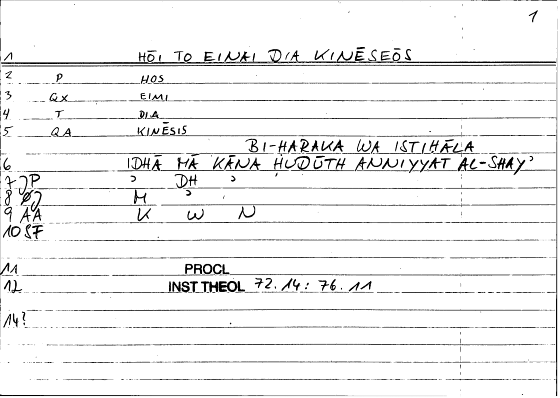 1
1 HŌI TO EINAI DIA KINĒSEŌS
2 P HOS
3 QX EIMI
4 T DIA
5 QA KINĒSIS
BI-HARAKA WA ISTIHĀLA
6 IDHĀ MĀ KĀNA HUDŪTH ANNIYYAT AL-SHAYʾ
7 JP ʾ DH ʾ
8 M ʾ
9 AA K W N
10 SF
11 PROCL
12 INST THEOL 72.14: 76.11
14?